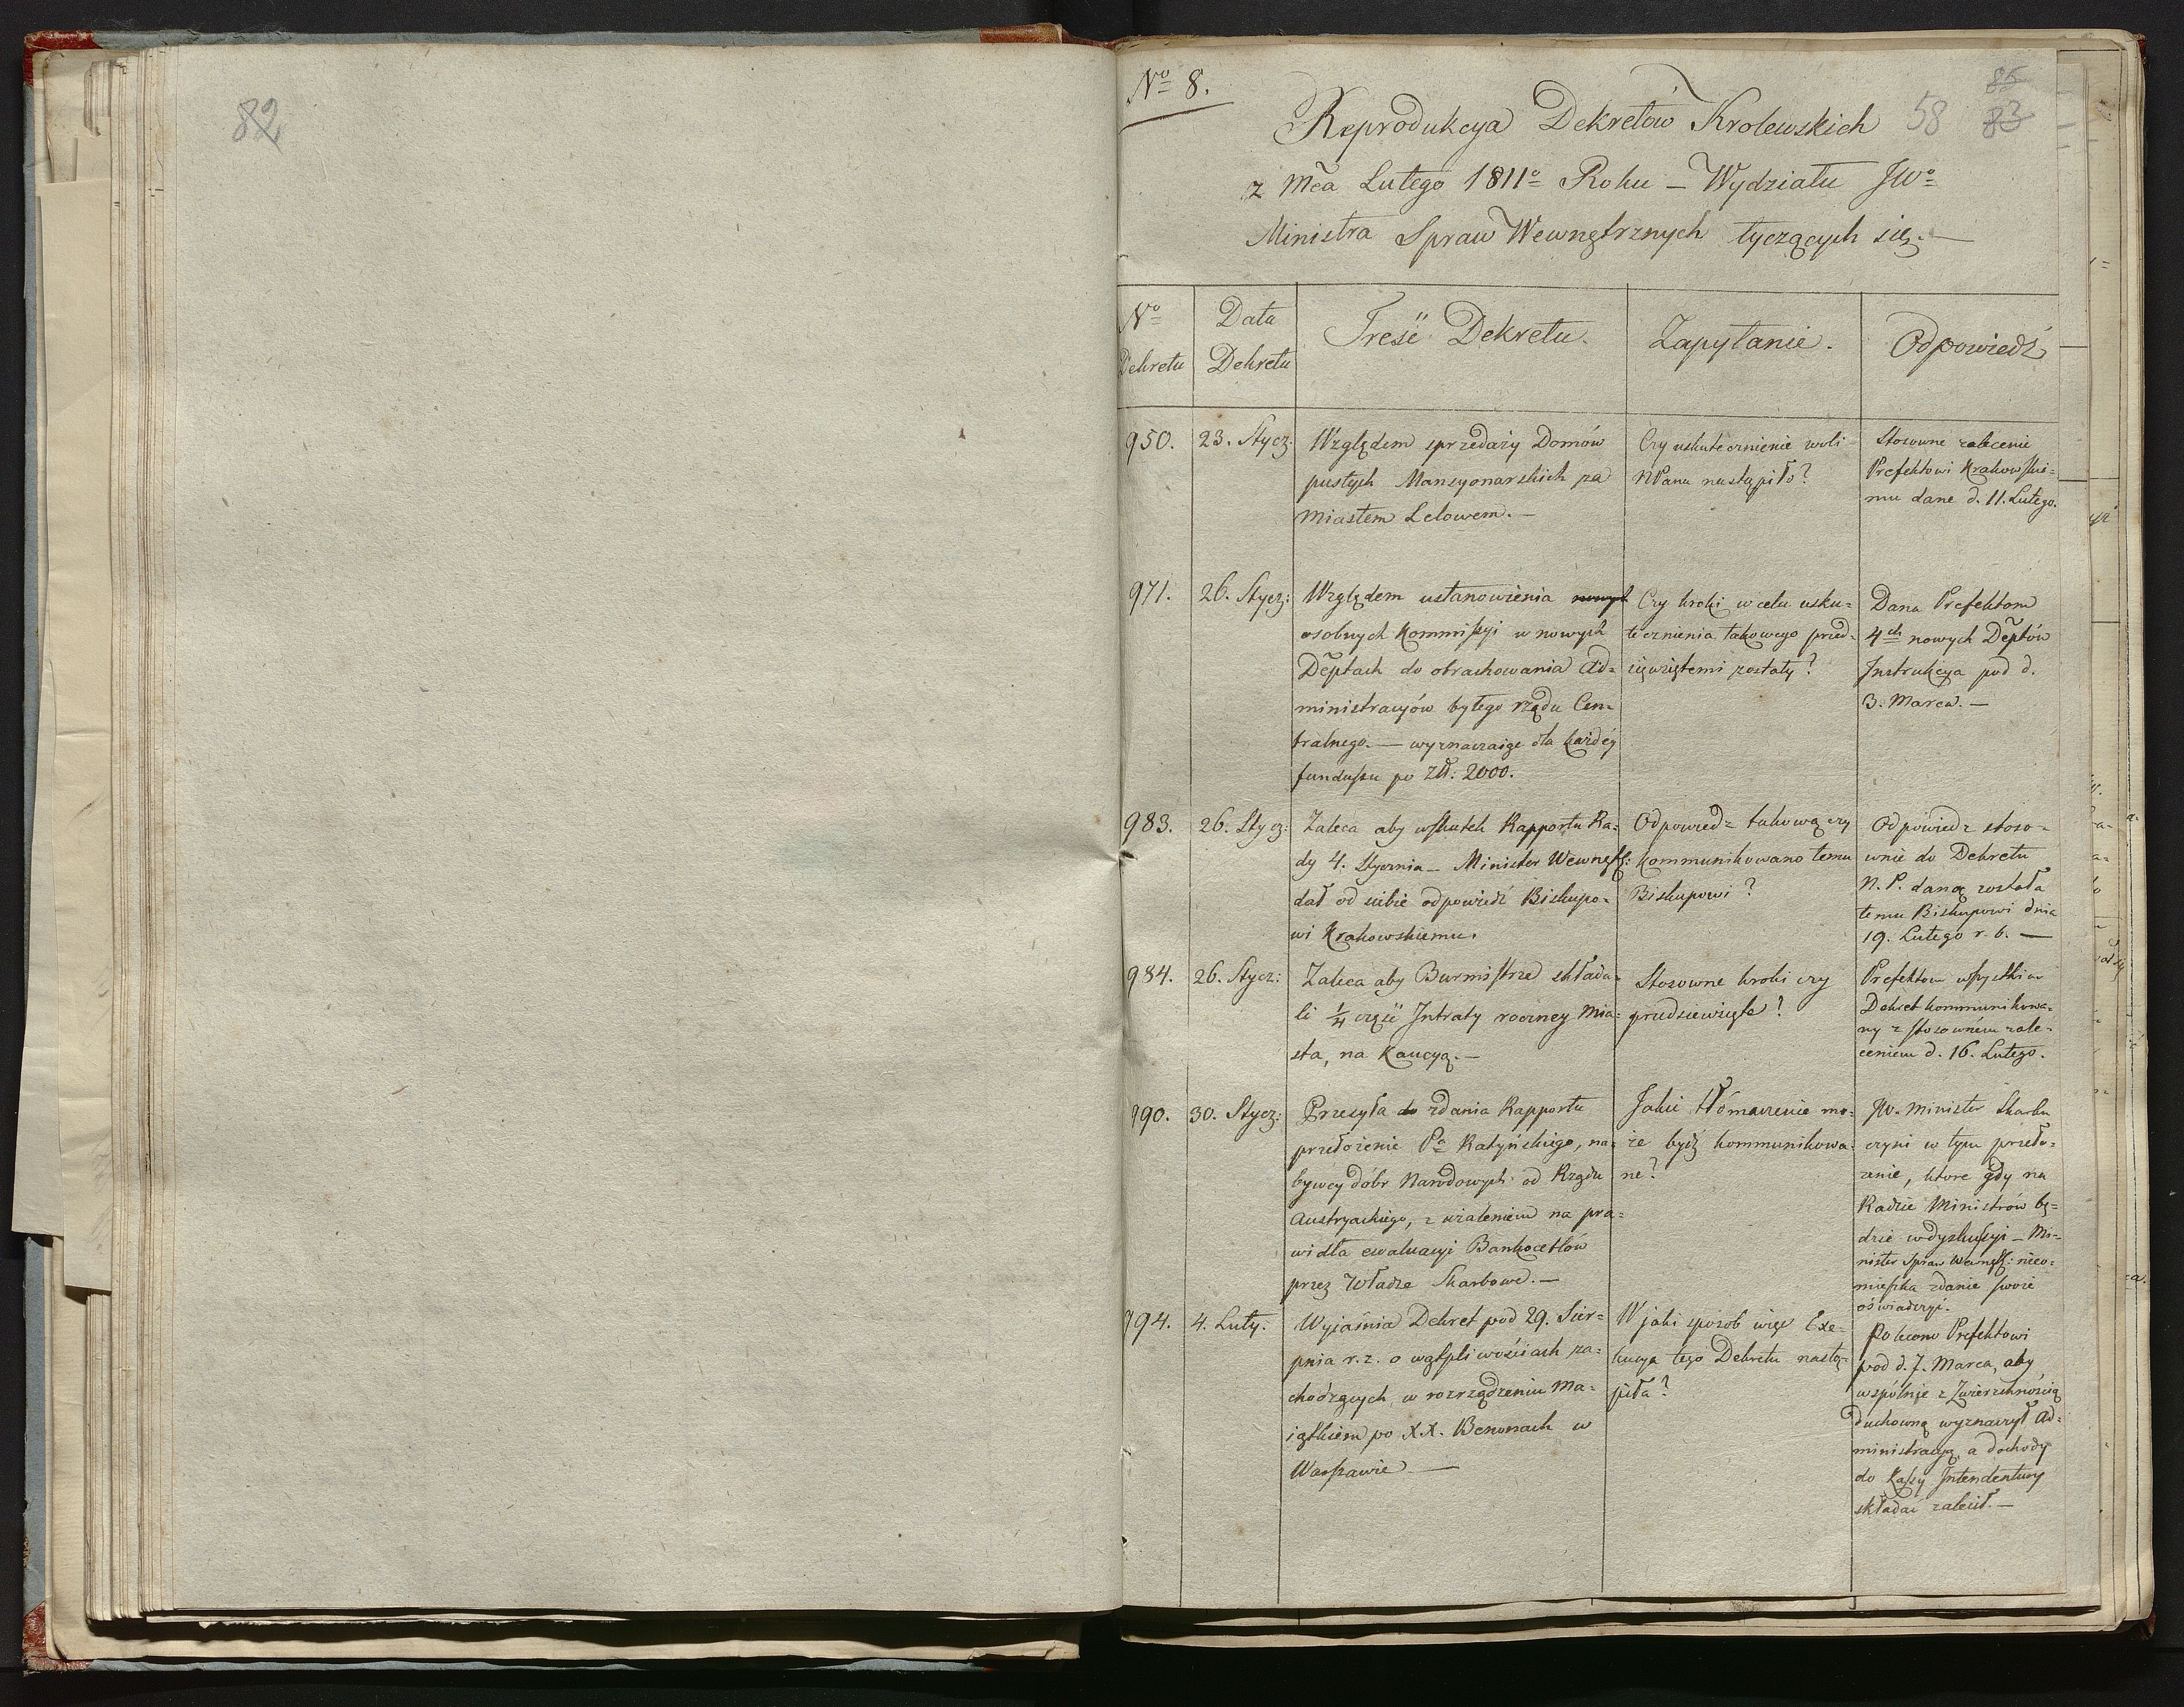 82
Nº 8.
86
58 83
Reprodukcya Dekretów Krolewskich
z Mca Lutego 1811º Roku – Wydziału JWº
Ministra Spraw Wewnętrznych tyczących się. —
Nº
Dekretu
Data
Dekretu
Treść Dekretu.
Zapytanie.
Odpowiedź
950.
23. Stycz:
Względem sprzedaży Domów
pustych Mansyonarskich za
Miastem Lelowem. —
Czy uskutecznienie woli
NPana nastąpiło?
Stosowne zalecenie
Prefektowi Krakowski=
mu dane d. 11. Lutego.
971.
26. Stycz:
Względem ustanowienia nowych
osobnych Kommissyi w nowych
Deptach do obrachowania Ad=
ministracyów byłego rządu Cen=
tralnego. — wyznaczaiąc dla każdéy
funduszu po Zł: 2000.
Czy kroki w celu usku=
tecznienia takowego przed=
sięwziętemi zostały?
Dana Prefektom
4ch nowych Deptów
Instrukcya pod d.
3. Marca. —
983.
26. Stycz:
Zaleca aby wskutek Rapportu Ra=
dy 4. Stycznia – Minister Wewnętr:
dał od siebie odpowiedź Biskupo=
wi Krakowskiemu.
Odpowiedź takową czy
kommunikowano temu
Biskupowi?
Odpowiedz stoso=
wnie do Dekretu
N. P. daną została
temu Biskupowi dnia
19. Lutego r. b. —
984.
26. Stycz:
Zaleca aby Burmistrze składa=
li 1/4 część Intraty roczney Mia=
sta, na Kaucyą. —
Stosowne kroki czy
przedsiewzięte?
Prefektom wszystkim
Dekret kommunikowa=
ny z stosowném zale=
ceniem d. 16. Lutego.
990.
30. Stycz:
Przesyła do zdania Rapportu
przełożenie Pa Ratyńskiego, na=
bywcy dóbr Narodowych od Rządu
Austryackiego, z użaleniem na pra=
widła ewaluacyi Bankocetlów
przez Władze Skarbowe. —
Jakie tłómaczenie mo=
że bydź kommunikowa=
ne?
JW. Minister Skarbu
czyni w tym przeło=
żenie, ktore gdy na
Radzie Ministrów bę=
dzie w dyskussyi – Mi=
nister Spraw Wewnętr: nieo=
mieszka zdanie swoie
oświadczyć.
994.
4. Luty.
Wyjaśnia Dekret pod 29. Sier=
pnia r. z. o wątpliwościach za=
chodzących w rozrządzeniu Ma=
iątkiem po XX. Benonach w
Warszawie —
W jaki sposób więc Exe=
kucya tego Dekretu nastą=
piła?
Polecono Prefektowi
pod d. 7. Marca, aby
wspólnie z Zwierzchnością
Duchowną wyznaczył Ad=
ministracyą, a dochody
do Kassy Intendentury
składać zalecił. —